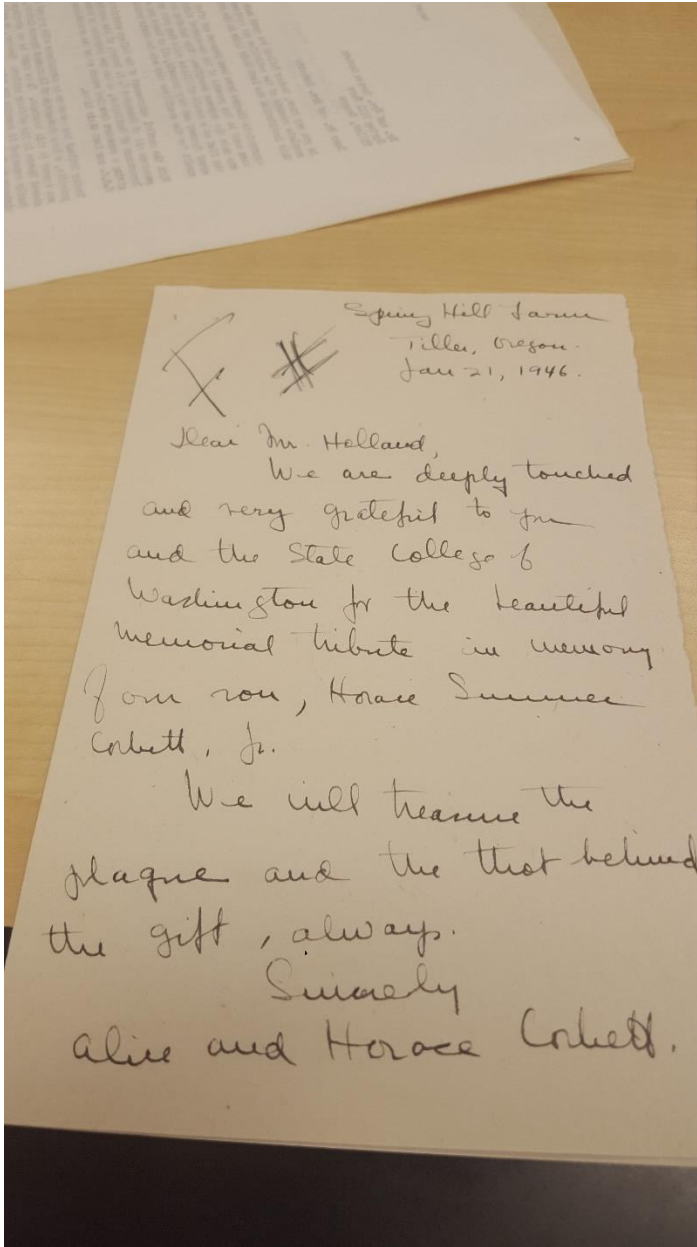 Spring Hill Farm
Tiller, Oregon.
Jan 21, 1946.
F #
Dear Mr. Holland,
We are deeply touched
and very grateful to you
and the State College of
Washington for the beautiful
memorial tribute in memory
of our son, Horace Sumner
Corbett, Jr.
We will treasure the
plaque and the thot behind
the gift, always.
Sincerely
Alice and Horace Corbett.